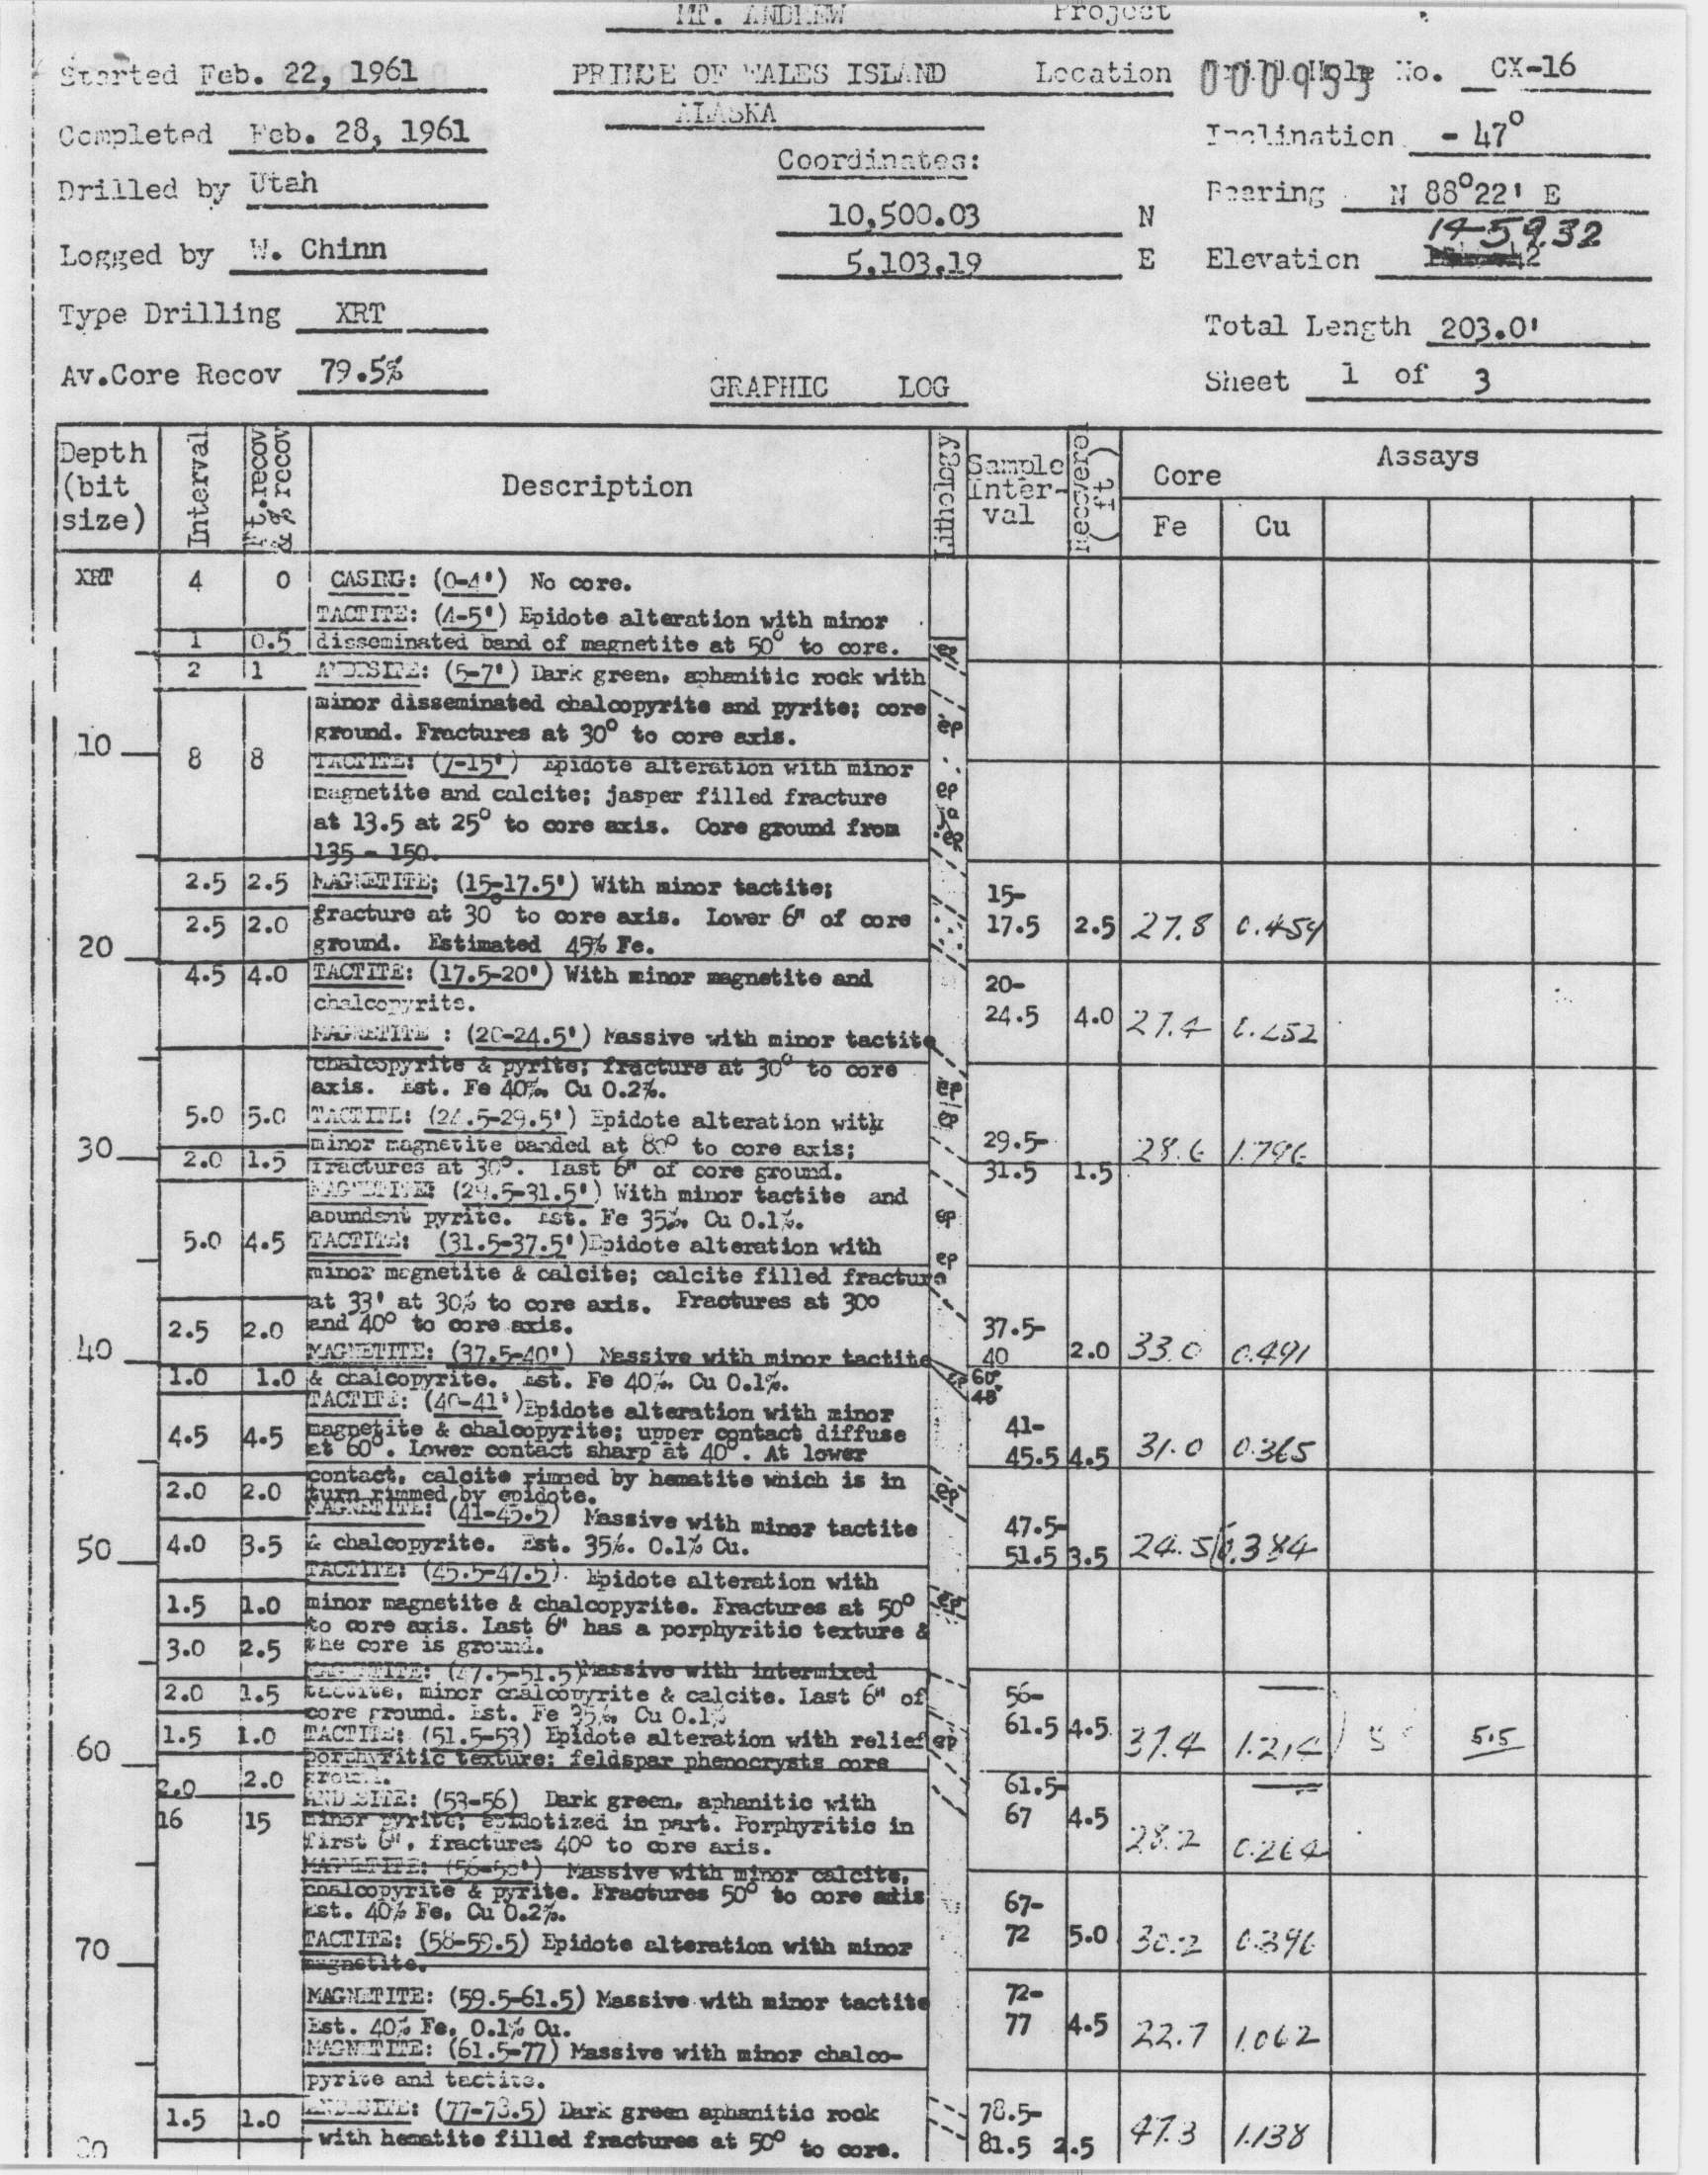 MT. ANDREW Project
Started Feb. 22, 1961 PRINCE OF WALES ISLAND Location 000953 Hole No. CX-16
ALASKA
Completed Feb. 28, 1961 Inclination - 47°
Coordinates:
Drilled by Utah Bearing N 88°22' E
10,500.03 N
1459.32
Logged by W. Chinn 5,103.19 E Elevation
Type Drilling XRT Total Length 203.0'
Av.Core Recov 79.5% GRAPHIC LOG Sheet 1 of 3
Depth (bit size) Interval Ft.recov & % recov Description Lithology Sample Inter- val Recovered (ft) Core Assays
Fe Cu
XRT 4 0 CASING: (0-4') No core.
TACTITE: (4-5') Epidote alteration with minor
1 0.5 disseminated band of magnetite at 50° to core. ep
2 1 ANDESITE: (5-7') Dark green, aphanitic rock with
minor disseminated chalcopyrite and pyrite; core
ground. Fractures at 30° to core axis. ep
10 8 8 TACTITE: (7-15') Epidote alteration with minor
magnetite and calcite; jasper filled fracture ep
at 13.5 at 25° to core axis. Core ground from ja ep
135 - 150.
2.5 2.5 MAGNETITE; (15-17.5') With minor tactite; 15-
2.5 2.0 fracture at 30° to core axis. Lower 6" of core 17.5 2.5 27.8 0.454
20 ground. Estimated 45% Fe.
4.5 4.0 TACTITE: (17.5-20') With minor magnetite and 20-
chalcopyrite. 24.5 4.0 27.4
MAGNETITE : (20-24.5') Massive with minor tactite
chalcopyrite & pyrite; fracture at 30° to core
axis. Est. Fe 40%. Cu 0.2%. ep
5.0 5.0 TACTITE: (24.5-29.5') Epidote alteration with ep
30 minor magnetite banded at 80° to core axis; 29.5- 28.6 1.796
2.0 1.5 fractures at 30°. Last 6" of core ground. 31.5 1.5
MAGNETITE: (29.5-31.5') With minor tactite and
abundant pyrite. Est. Fe 35%. Cu 0.1%. ep
5.0 4.5 TACTITE: (31.5-37.5') Epidote alteration with ep
minor magnetite & calcite; calcite filled fracture
at 33' at 30% to core axis. Fractures at 30o
2.5 2.0 and 40° to core axis. 37.5-
40 MAGNETITE: (37.5-40') Massive with minor tactite 40 2.0 33.0 0.491
1.0 1.0 & chalcopyrite. Est. Fe 40%. Cu 0.1%. ep 60°
TACTITE: (40-41') Epidote alteration with minor
4.5 4.5 magnetite & chalcopyrite; upper contact diffuse 41-
at 60°. Lower contact sharp at 40°. At lower 45.5 4.5 31.0 0.365
contact, calcite rimmed by hematite which is in
2.0 2.0 turn rimmed by epidote. ep
MAGNETITE: (41-45.5) Massive with minor tactite 47.5-
50 4.0 3.5 & chalcopyrite. Est. 35%. 0.1% Cu. 51.5 3.5 24.5 0.384
TACTITE: (45.5-47.5). Epidote alteration with
1.5 1.0 minor magnetite & chalcopyrite. Fractures at 50° ep
to core axis. Last 6" has a porphyritic texture &
3.0 2.5 the core is ground.
MAGNETITE: (47.5-51.5) Massive with intermixed
2.0 1.5 tactite, minor chalcopyrite & calcite. Last 6" of 56-
core ground. Est. Fe 35% Cu 0.1%
1.5 1.0 TACTITE: (51.5-53) Epidote alteration with relief ep 61.5 4.5 37.4 1.214 5.5
60 porphyritic texture; feldspar phenocrysts core
2.0 2.0 ground. 61.5-
ANDESITE: (53-56) Dark green, aphanitic with
16 15 minor pyrite; epidotized in part. Porphyritic in 67 4.5
first 6", fractures 40° to core axis. 28.2 0.264
MAGNETITE: (56-58') Massive with minor calcite,
chalcopyrite & pyrite. Fractures 50° to core axis
Est. 40% Fe, Cu 0.2%. 67-
70 TACTITE: (58-59.5) Epidote alteration with minor 72 5.0 30.2 0.396
magnetite.
MAGNETITE: (59.5-61.5) Massive with minor tactite 72-
Est. 40% Fe, 0.1% Cu. 77 4.5 22.7 1.062
MAGNETITE: (61.5-77) Massive with minor chalco-
pyrite and tactite.
1.5 1.0 ANDESITE: (77-78.5) Dark green aphanitic rock 78.5-
80 with hematite filled fractures at 50° to core. 81.5 2.5 47.3 1.138